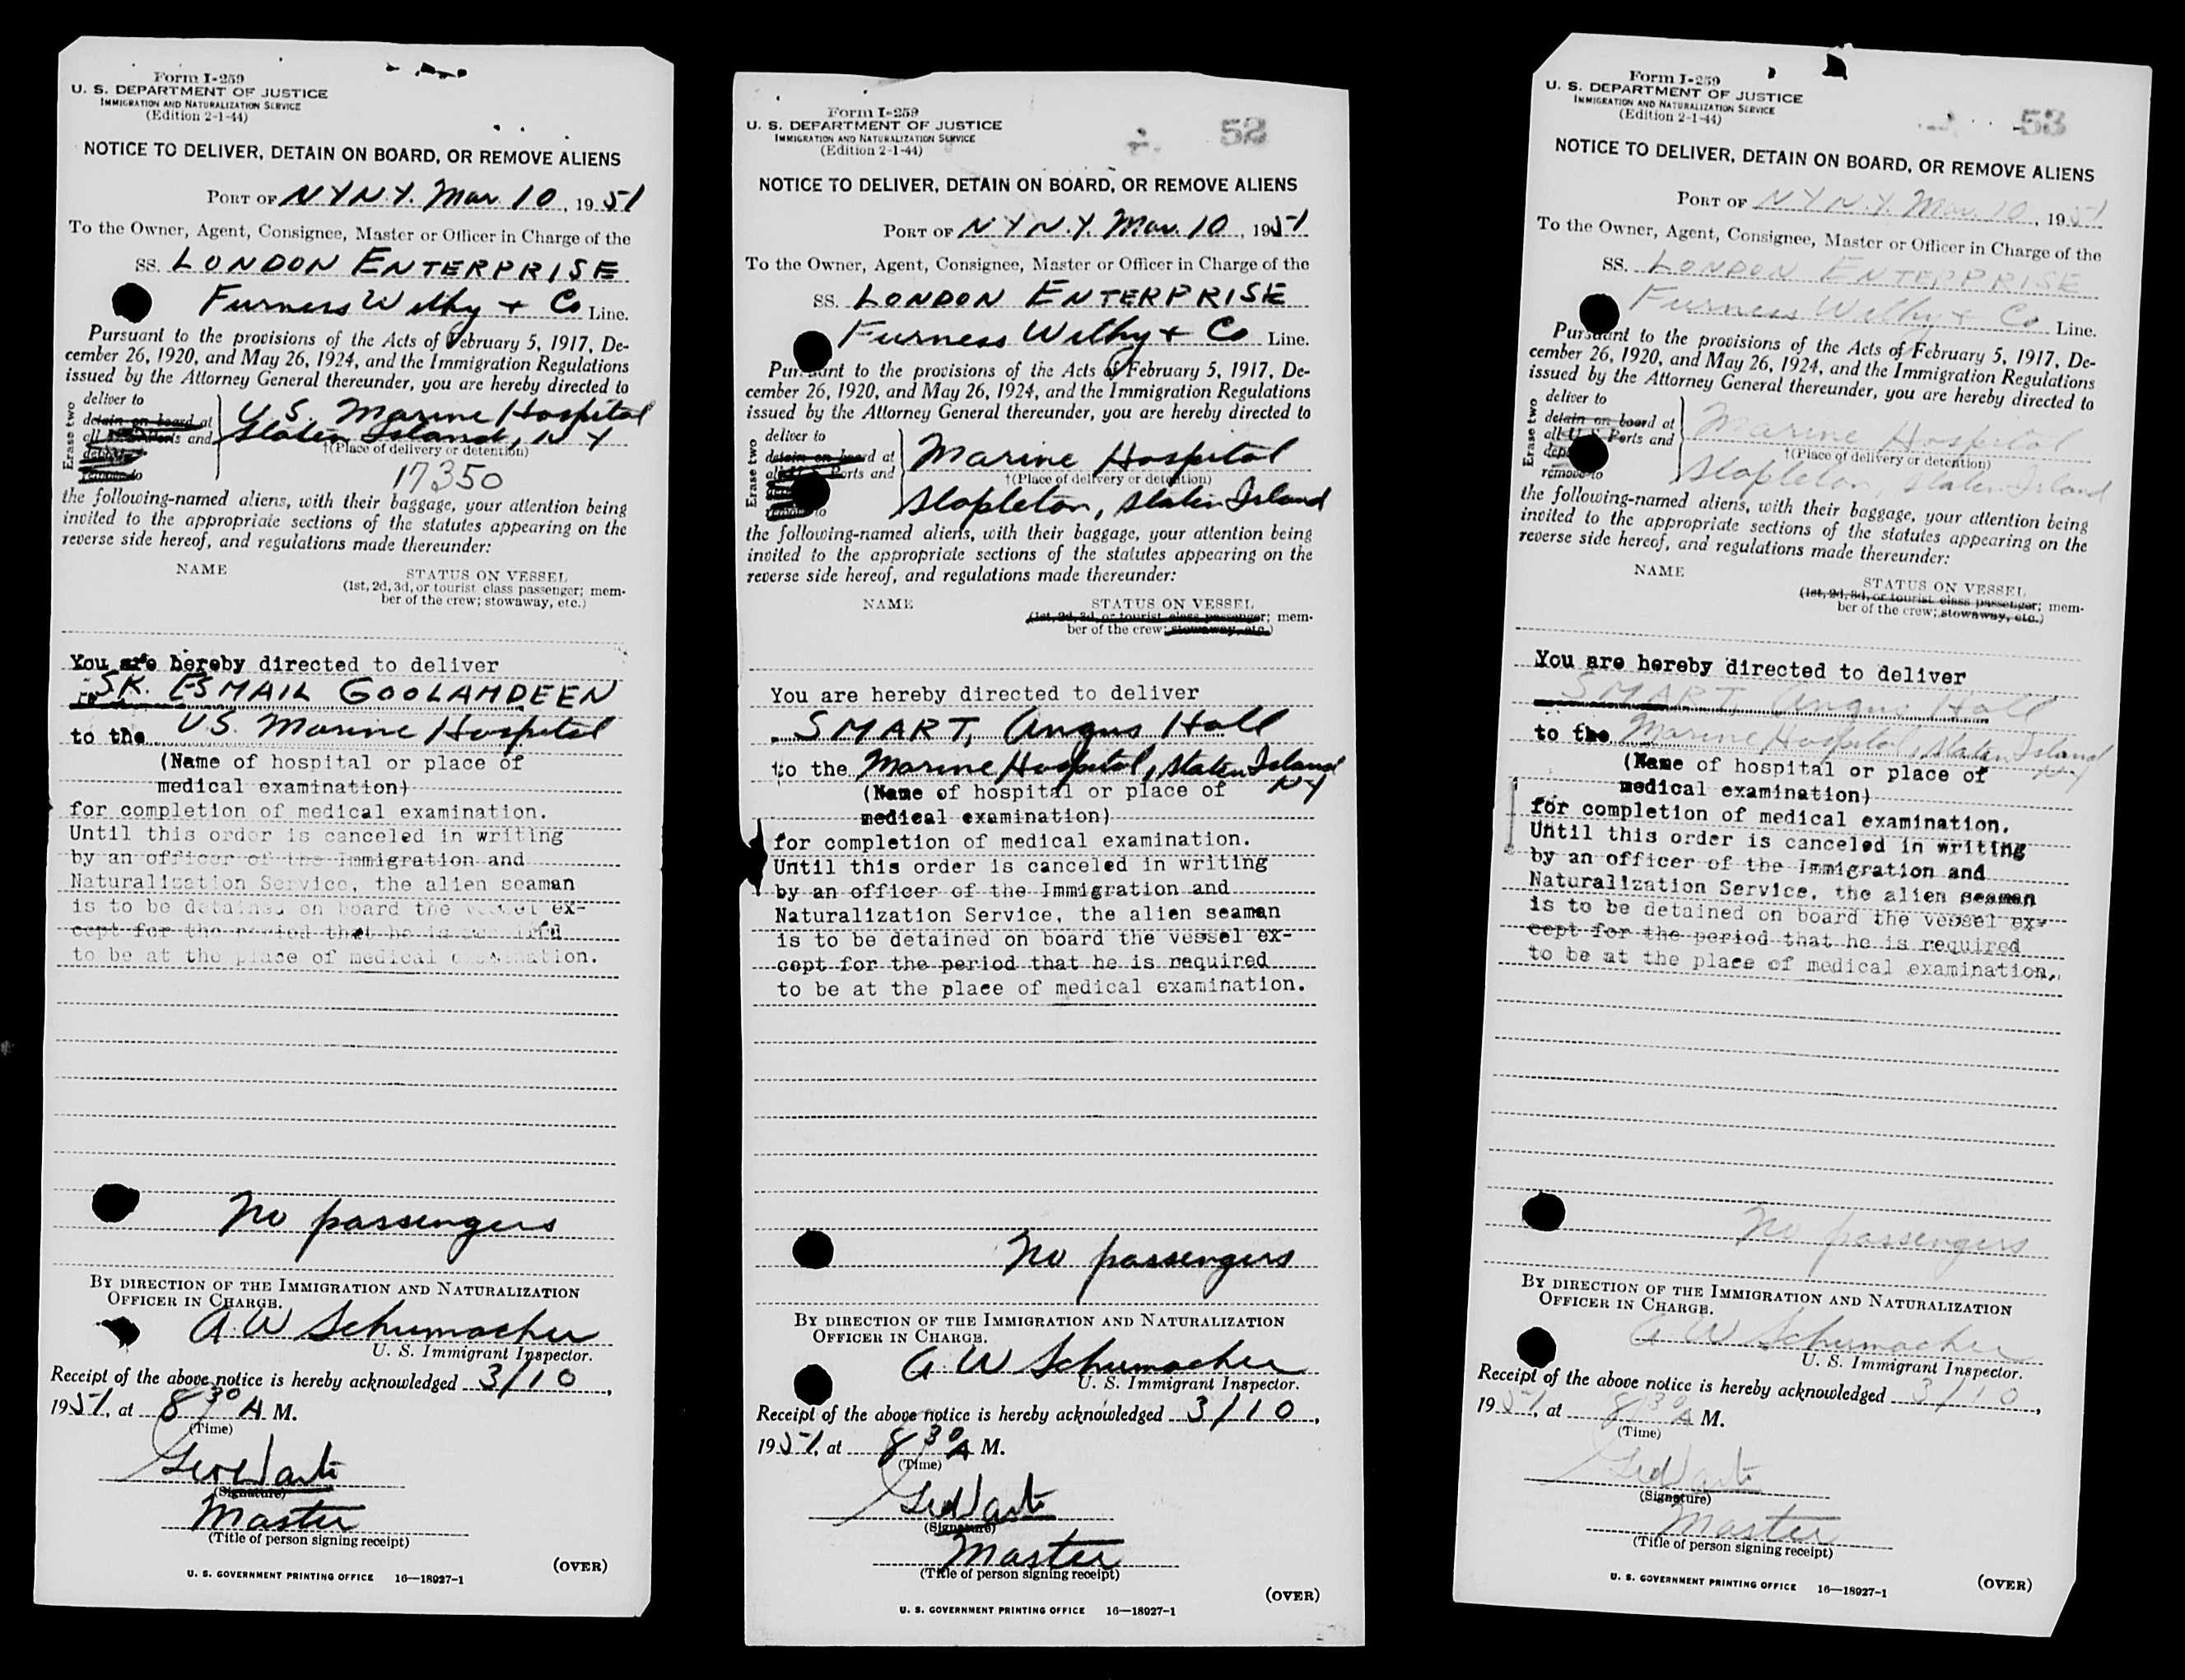 Form I-259
U. S. DEPARTMENT OF JUSTICE
IMMIGRATION AND NATURALIZATION SERVICE
(Edition 2-1-44)
NOTICE TO DELIVER, DETAIN ON BOARD, OR REMOVE ALIENS
PORT OF N Y N.Y. Mar. 10, 1951
To the Owner, Agent, Consignee, Master or Officer in Charge of the
SS. LONDON ENTERPRISE
Furness Withy + Co Line.
Pursuant to the provisions of the Acts of February 5, 1917, De-
cember 26, 1920, and May 26, 1924, and the Immigration Regulations
issued by the Attorney General thereunder, you are hereby directed to
Erase two
deliver to
detain on board at
all U S Ports and
remove to
U.S. Marine Hospital
Staten Island, N Y
†(Place of delivery or detention)
17350
the following-named aliens, with their baggage, your attention being
invited to the appropriate sections of the statutes appearing on the
reverse side hereof, and regulations made thereunder:
NAME
STATUS ON VESSEL
(1st, 2d, 3d, or tourist class passenger; mem-
ber of the crew; stowaway, etc.)
You are hereby directed to deliver
SK. ESMAIL GOOLAMDEEN
to the U.S. Marine Hospital
(Name of hospital or place of
medical examination)
for completion of medical examination.
Until this order is canceled in writing
by an officer of the Immigration and
Naturalization Service, the alien seaman
is to be detained on board the vessel ex-
cept for the period that he is required
to be at the place of medical examination.
No passengers
BY DIRECTION OF THE IMMIGRATION AND NATURALIZATION
OFFICER IN CHARGE.
A W Schumacher
U. S. Immigrant Inspector.
Receipt of the above notice is hereby acknowledged 3/10,
1951, at 8 30 A M.
(Time)
(Signature)
Master
(Title of person signing receipt)
(OVER)
U. S. GOVERNMENT PRINTING OFFICE 16—18927-1
Form I-259
U. S. DEPARTMENT OF JUSTICE
IMMIGRATION AND NATURALIZATION SERVICE
(Edition 2-1-44)
52
NOTICE TO DELIVER, DETAIN ON BOARD, OR REMOVE ALIENS
PORT OF N Y N.Y. Mar. 10, 1951
To the Owner, Agent, Consignee, Master or Officer in Charge of the
SS. LONDON ENTERPRISE
Furness Withy + Co Line.
Pursuant to the provisions of the Acts of February 5, 1917, De-
cember 26, 1920, and May 26, 1924, and the Immigration Regulations
issued by the Attorney General thereunder, you are hereby directed to
Erase two
deliver to
detain on board at
all U S Ports and
remove to
Marine Hospital
†(Place of delivery or detention)
Stapleton, Staten Island
the following-named aliens, with their baggage, your attention being
invited to the appropriate sections of the statutes appearing on the
reverse side hereof, and regulations made thereunder:
NAME
STATUS ON VESSEL
(1st, 2d, 3d, or tourist class passenger; mem-
ber of the crew; stowaway, etc.)
You are hereby directed to deliver
SMART, Angus Hall
to the Marine Hospital, Staten Island
NY
(Name of hospital or place of
medical examination)
for completion of medical examination.
Until this order is canceled in writing
by an officer of the Immigration and
Naturalization Service, the alien seaman
is to be detained on board the vessel ex-
cept for the period that he is required
to be at the place of medical examination.
No passengers
BY DIRECTION OF THE IMMIGRATION AND NATURALIZATION
OFFICER IN CHARGE.
A W Schumacher
U. S. Immigrant Inspector.
Receipt of the above notice is hereby acknowledged 3/10,
1951, at 8 30 A M.
(Time)
(Signature)
Master
(Title of person signing receipt)
(OVER)
U. S. GOVERNMENT PRINTING OFFICE 16—18927-1
Form I-259
U. S. DEPARTMENT OF JUSTICE
IMMIGRATION AND NATURALIZATION SERVICE
(Edition 2-1-44)
53
NOTICE TO DELIVER, DETAIN ON BOARD, OR REMOVE ALIENS
PORT OF N Y N.Y. Mar. 10, 1951
To the Owner, Agent, Consignee, Master or Officer in Charge of the
SS. LONDON ENTERPRISE
Furness Withy + Co Line.
Pursuant to the provisions of the Acts of February 5, 1917, De-
cember 26, 1920, and May 26, 1924, and the Immigration Regulations
issued by the Attorney General thereunder, you are hereby directed to
Erase two
deliver to
detain on board at
all U S Ports and
remove to
Marine Hospital
†(Place of delivery or detention)
Stapleton, Staten Island
the following-named aliens, with their baggage, your attention being
invited to the appropriate sections of the statutes appearing on the
reverse side hereof, and regulations made thereunder:
NAME
STATUS ON VESSEL
(1st, 2d, 3d, or tourist class passenger; mem-
ber of the crew; stowaway, etc.)
You are hereby directed to deliver
SMART, Angus Hall
to the Marine Hospital, Staten Island
NY
(Name of hospital or place of
medical examination)
for completion of medical examination.
Until this order is canceled in writing
by an officer of the Immigration and
Naturalization Service, the alien seaman
is to be detained on board the vessel ex-
cept for the period that he is required
to be at the place of medical examination.
No passengers
BY DIRECTION OF THE IMMIGRATION AND NATURALIZATION
OFFICER IN CHARGE.
A W Schumacher
U. S. Immigrant Inspector.
Receipt of the above notice is hereby acknowledged 3/10,
1951, at 8 30 A M.
(Time)
(Signature)
Master
(Title of person signing receipt)
(OVER)
U. S. GOVERNMENT PRINTING OFFICE 16—18927-1